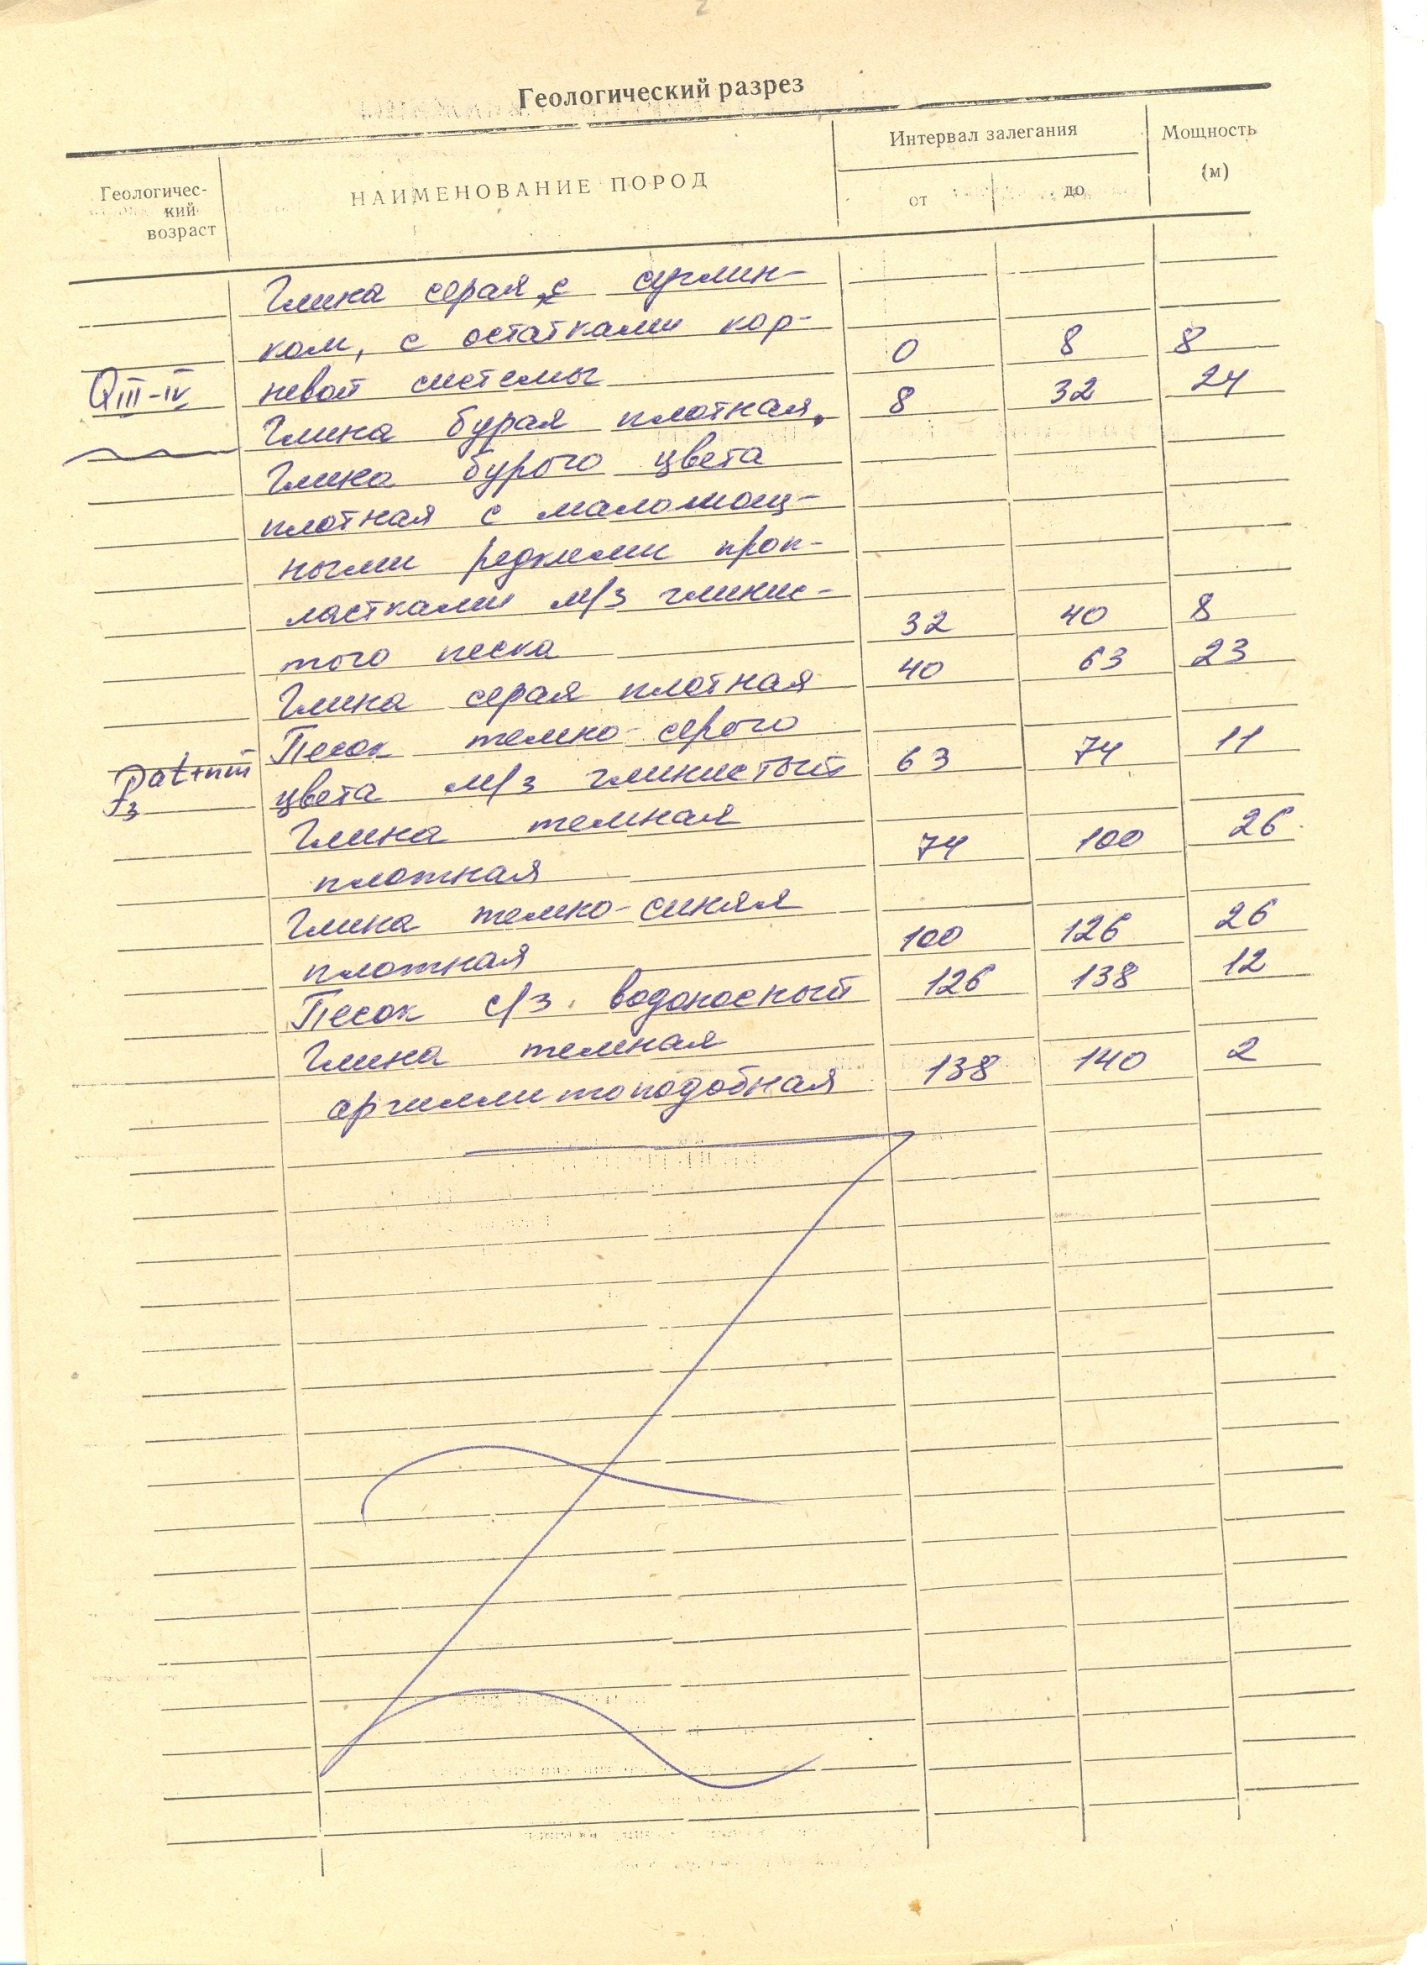 2
Геологический разрез
Геологичес-
кий
возраст
НАИМЕНОВАНИЕ ПОРОД
Интервал залегания
от до
Мощность
(м)
Глина серая с суглин-
ком, с остатками кор-
QIII-IV невой системы 0 8 8
Глина бурая плотная, 8 32 24
Глина бурого цвета
плотная с маломощ-
ными редкими проп-
ластками м/з глинис-
того песка 32 40 8
Глина серая плотная 40 63 23
Песок темно-серого
P3at+nm цвета м/з глинистый 63 74 11
Глина темная
плотная 74 100 26
Глина темно-синяя
плотная 100 126 26
Песок с/з. водоносный 126 138 12
Глина темная
аргиллитоподобная 138 140 2